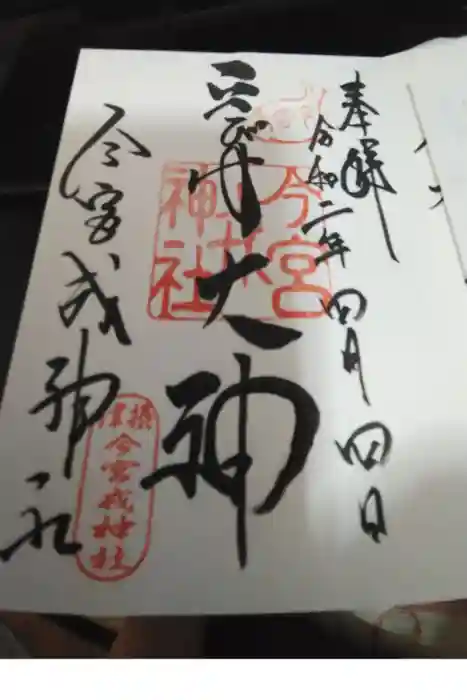 奉拝
令和二年四月四日
ゑびす大神
今宮戎神社
今宮戎神社
摂津
今宮戎神社